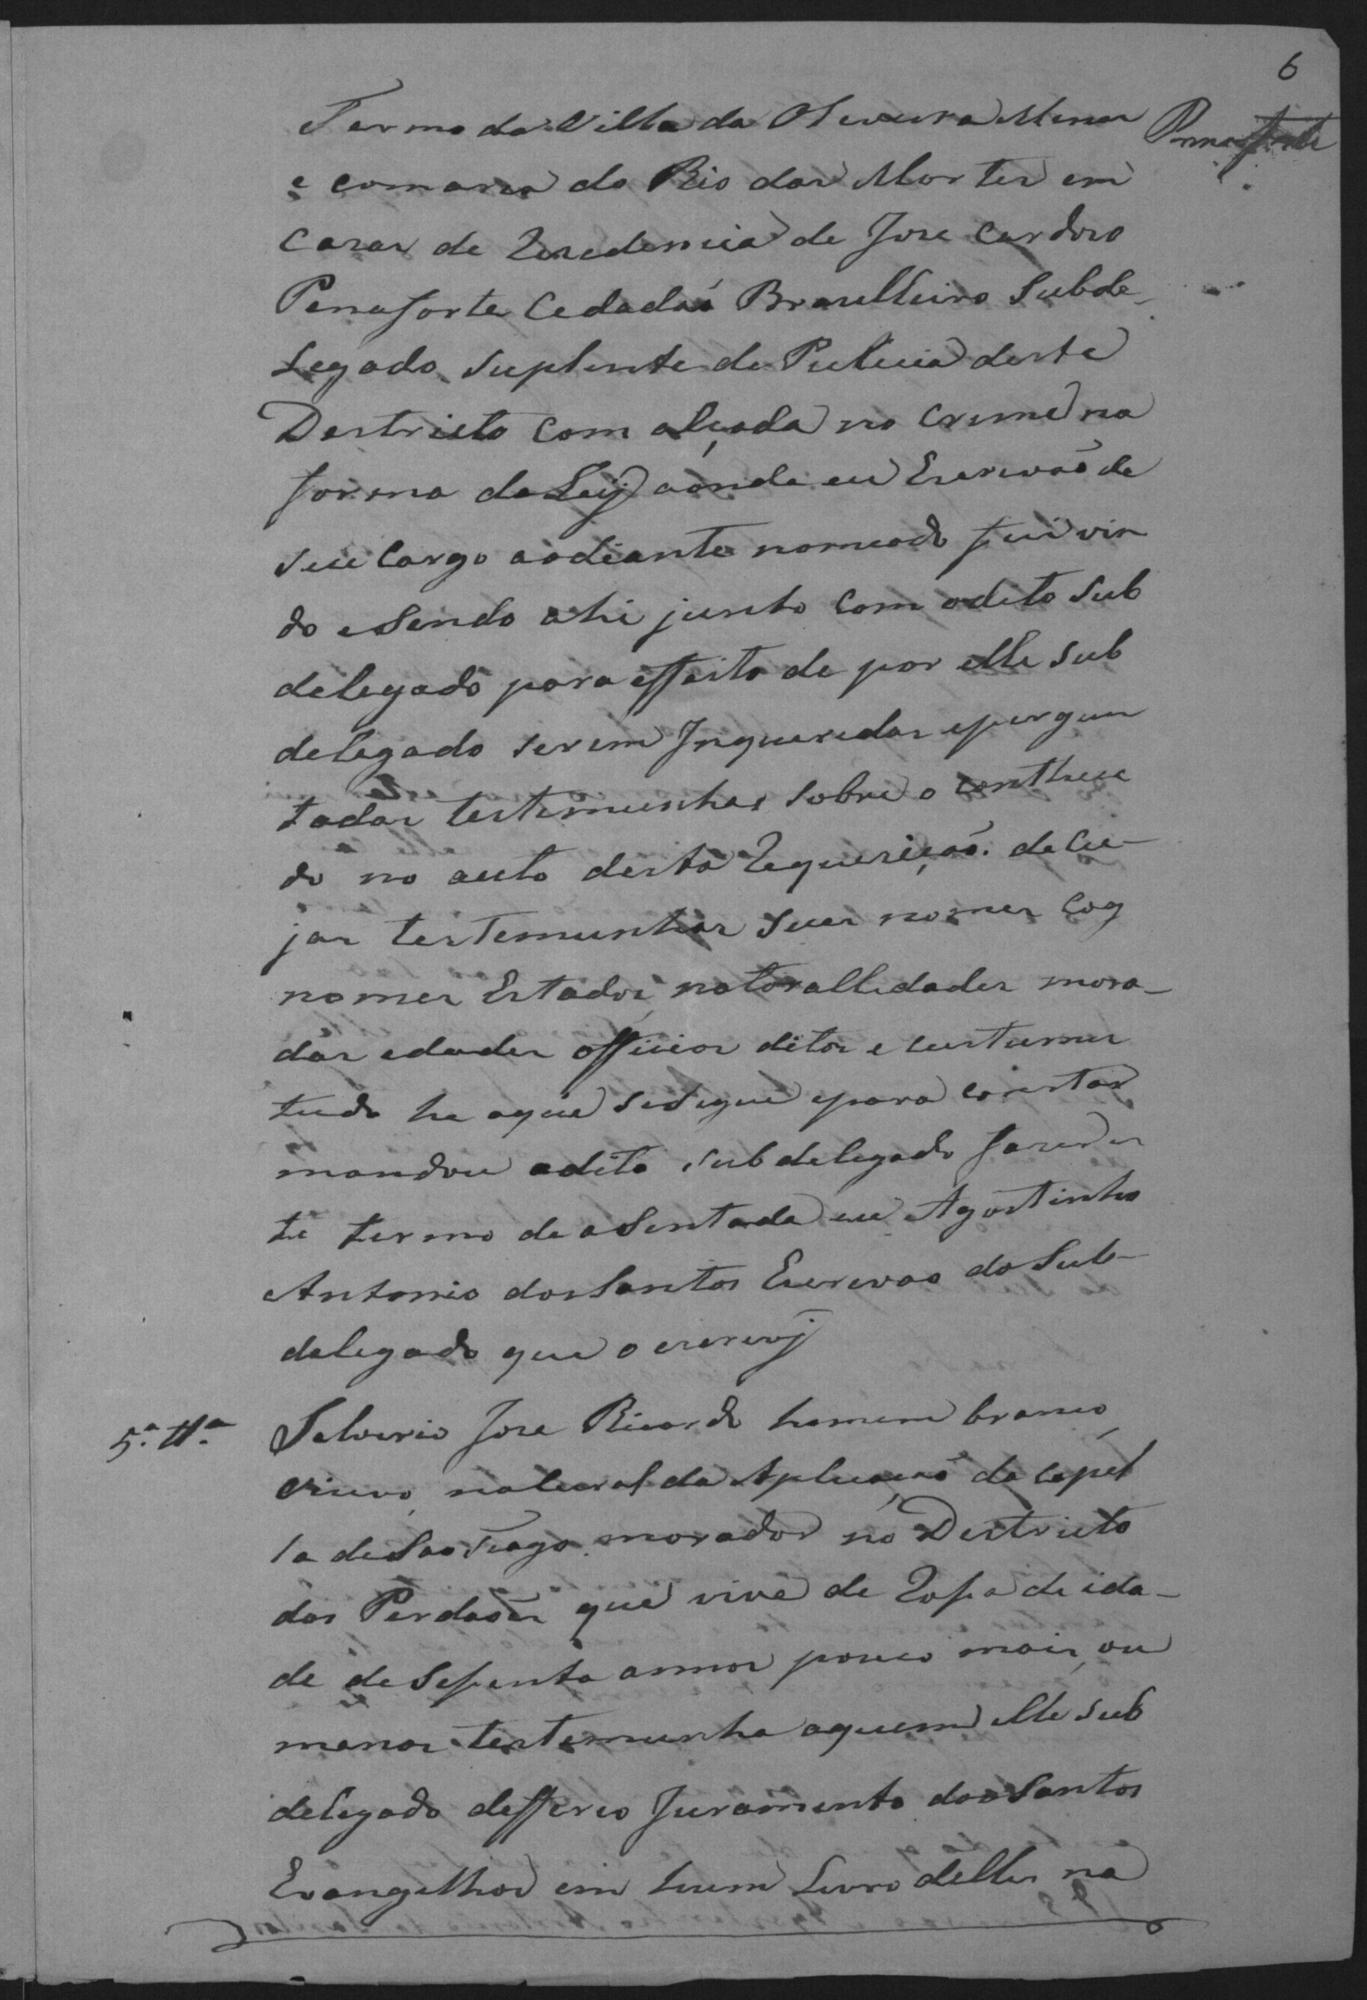 6
Pennaforte
Termo da Villa da Oliveira Minas
e comarca do Rio das Mortes em
Cazas de Rezedencia de Joze Cardozo
Penaforte Cedadaó Brazilleiro Subde-
legado suplente de Pulicia deste
Destricto com alçada no crime na
forma da Ley aonde eu Escrivaõ de
seu Cargo aodiante nomeado fui vin
do e Sendo ahi junto com odito Sub
delegado para effeito de por elle sub
delegado serem Inqueridas epergun
tadas testemunhas sobre o contheu
do no auto desta Requeriçaõ. de Cu-
jas testemunhas seus nomes cog
nomes Estados, naturallidades mora-
das edades officios ditos e custumes
tudo he aque sesegue epara constar
mandou odito subdelegado fazer es
te termo de aSentada eu Agostinho
Antonio dos Santos Escrivao do Sub-
delegado que o escrevy
5.ª tt.ª
Selverio Joze Ricardo homem branco
viuvo natural da Aplicaçaõ da Capel
la de Sao Tiago morador no Destricto
dos Perdoẽs que vive de Rossa de ida-
de de Sessenta annos pouco mais ou
menos testemunha aquem elle sub
delegado defferio Juramento dos Santos
Evangelhos em hum Livro delles na